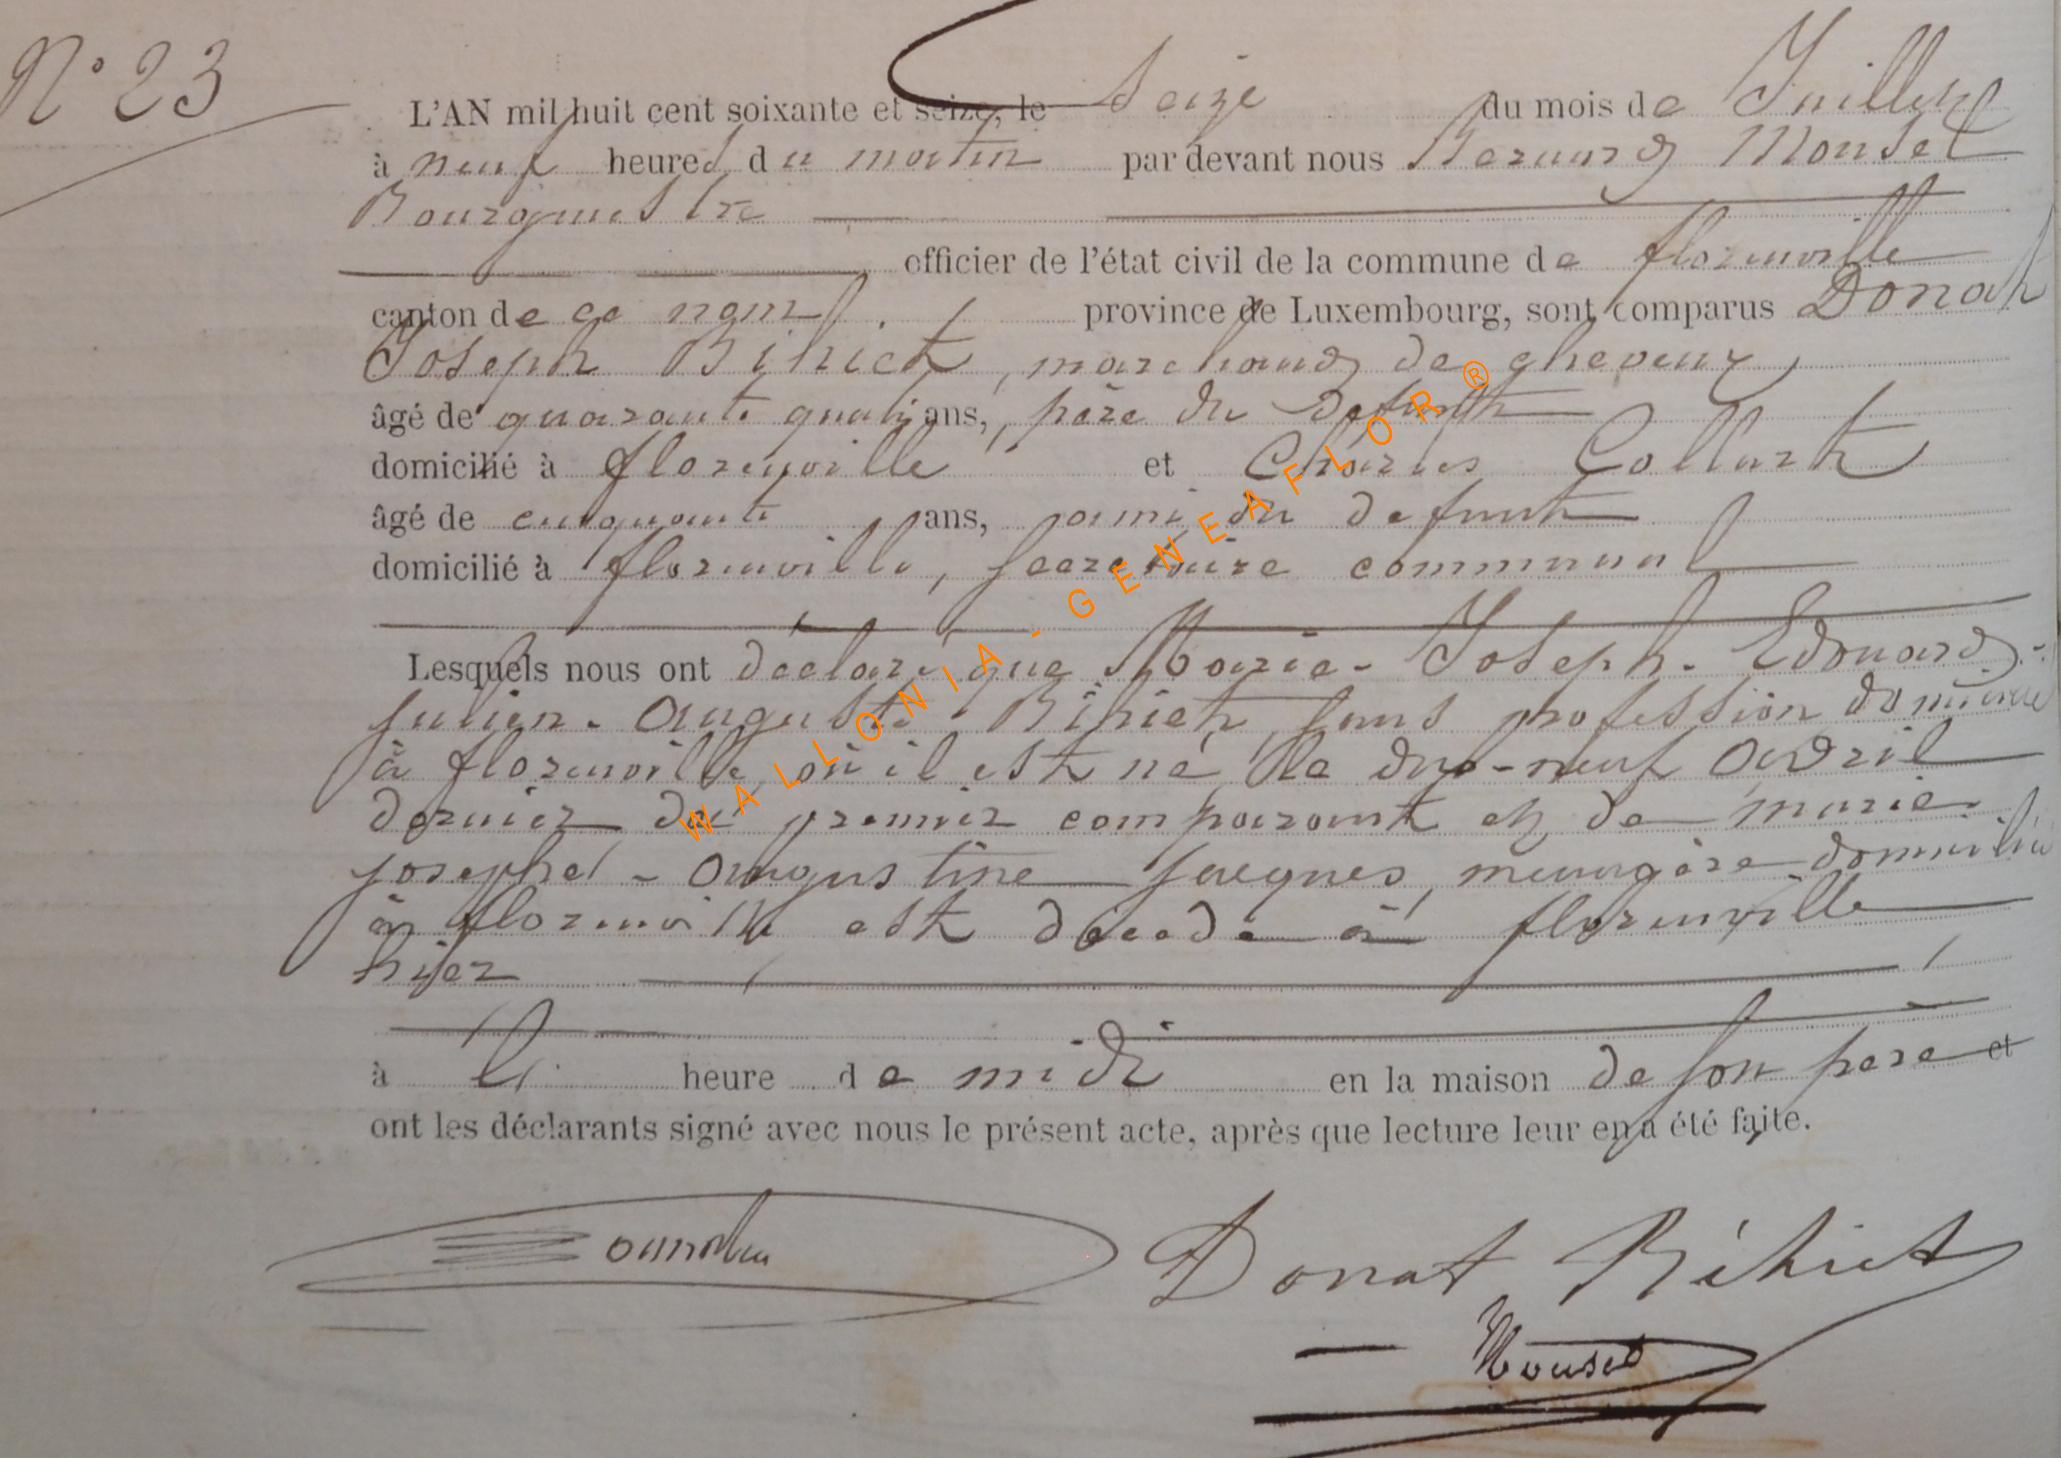 N° 23
L'AN mil huit cent soixante et seize, le Seize du mois de Juillet
à neuf heures du matin par devant nous Bernard Mouset
Bourgmestre
officier de l'état civil de la commune de florenville
canton de ce nom province de Luxembourg, sont comparus Donat
Joseph Bihiet, marchand de cheveux,
âgé de quarante quatre ans, père du defunt
domicilié à florenville et Charles Collart
âgé de cinquante ans, ami du defunt
domicilié à florenville, secretaire communal
Lesquels nous ont déclaré que Marie-Joseph-Edouard-
Julien-Auguste Bihiet, sans profession domicilié
à florenville, où il est né le dix-neuf avril
dernier du premier comparant et de marie
josephe-Augustine Jacques, menagère domiciliée
à florenville est décédé à florenville
hier
à heure de midi en la maison de son père et
ont les déclarants signé avec nous le présent acte, après que lecture leur en a été faite.
Donat Bihiet
Mouset
WALLONIA-GENEAFLOR®